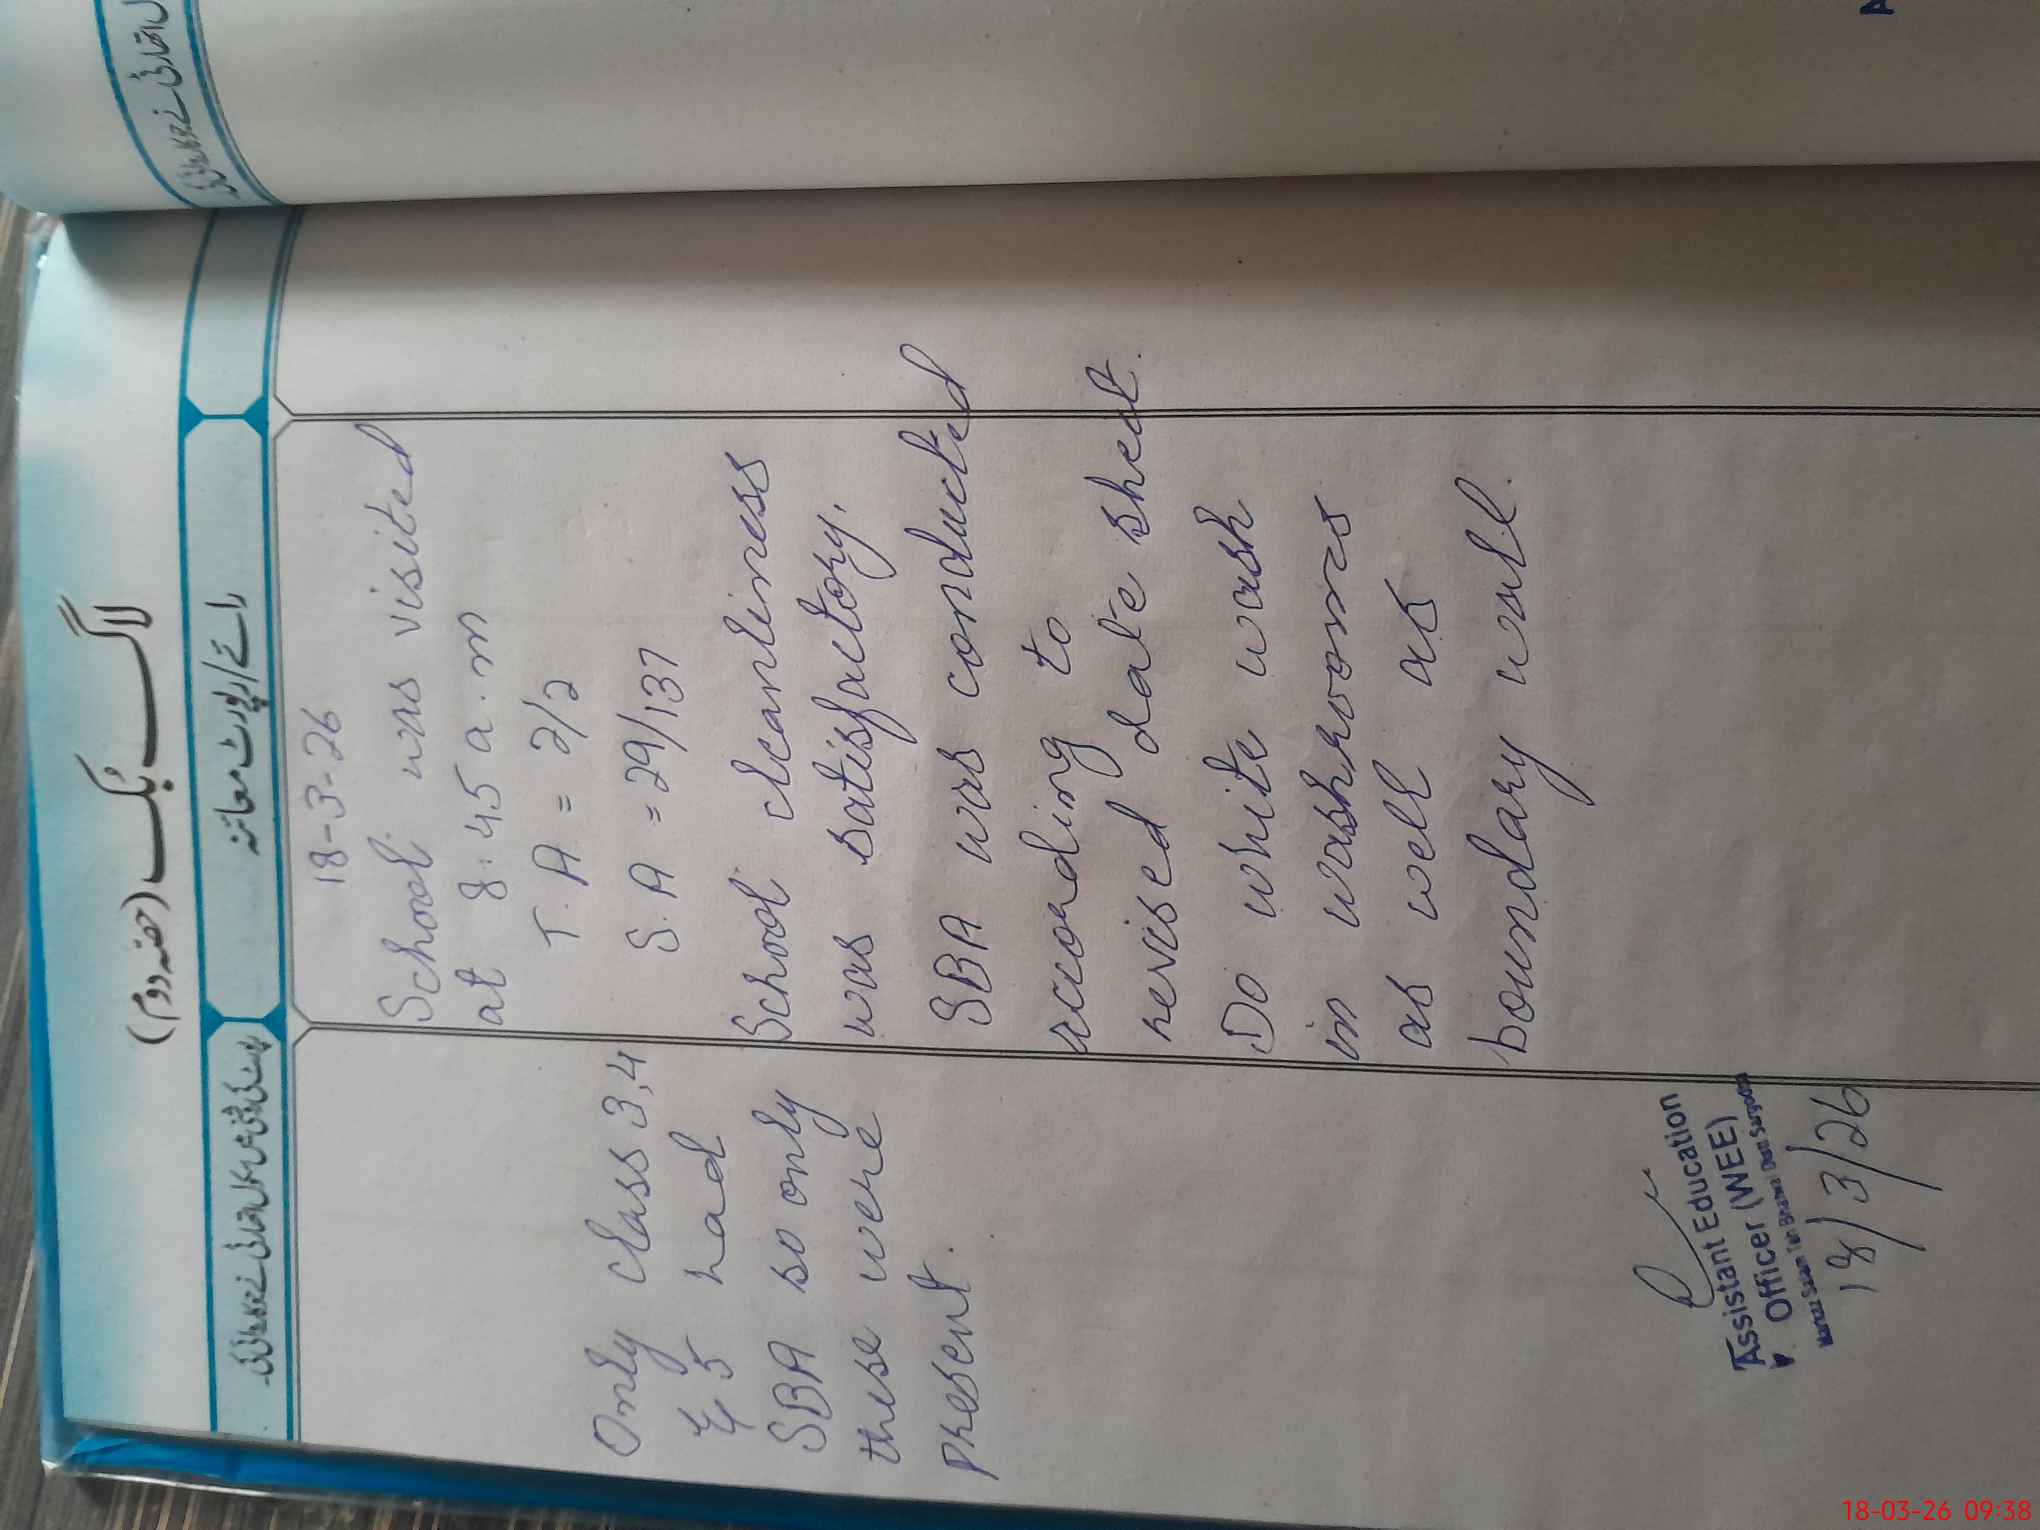 لاگ بُک (حصہ دوم)
رائے/رپورٹ معائنہ
18-3-26
School was visited
at 8:45 a.m
T.A = 2/2
S.A = 29/137
School cleanliness
was satisfactory.
SBA was conducted
according to
revised date sheet.
Do white wash
in washrooms
as well as
boundary wall.
Only class 3,4
& 5 had
SBA so only
these were
present.
Assistant Education
Officer (WEE)
18/3/26
18-03-26 09:38